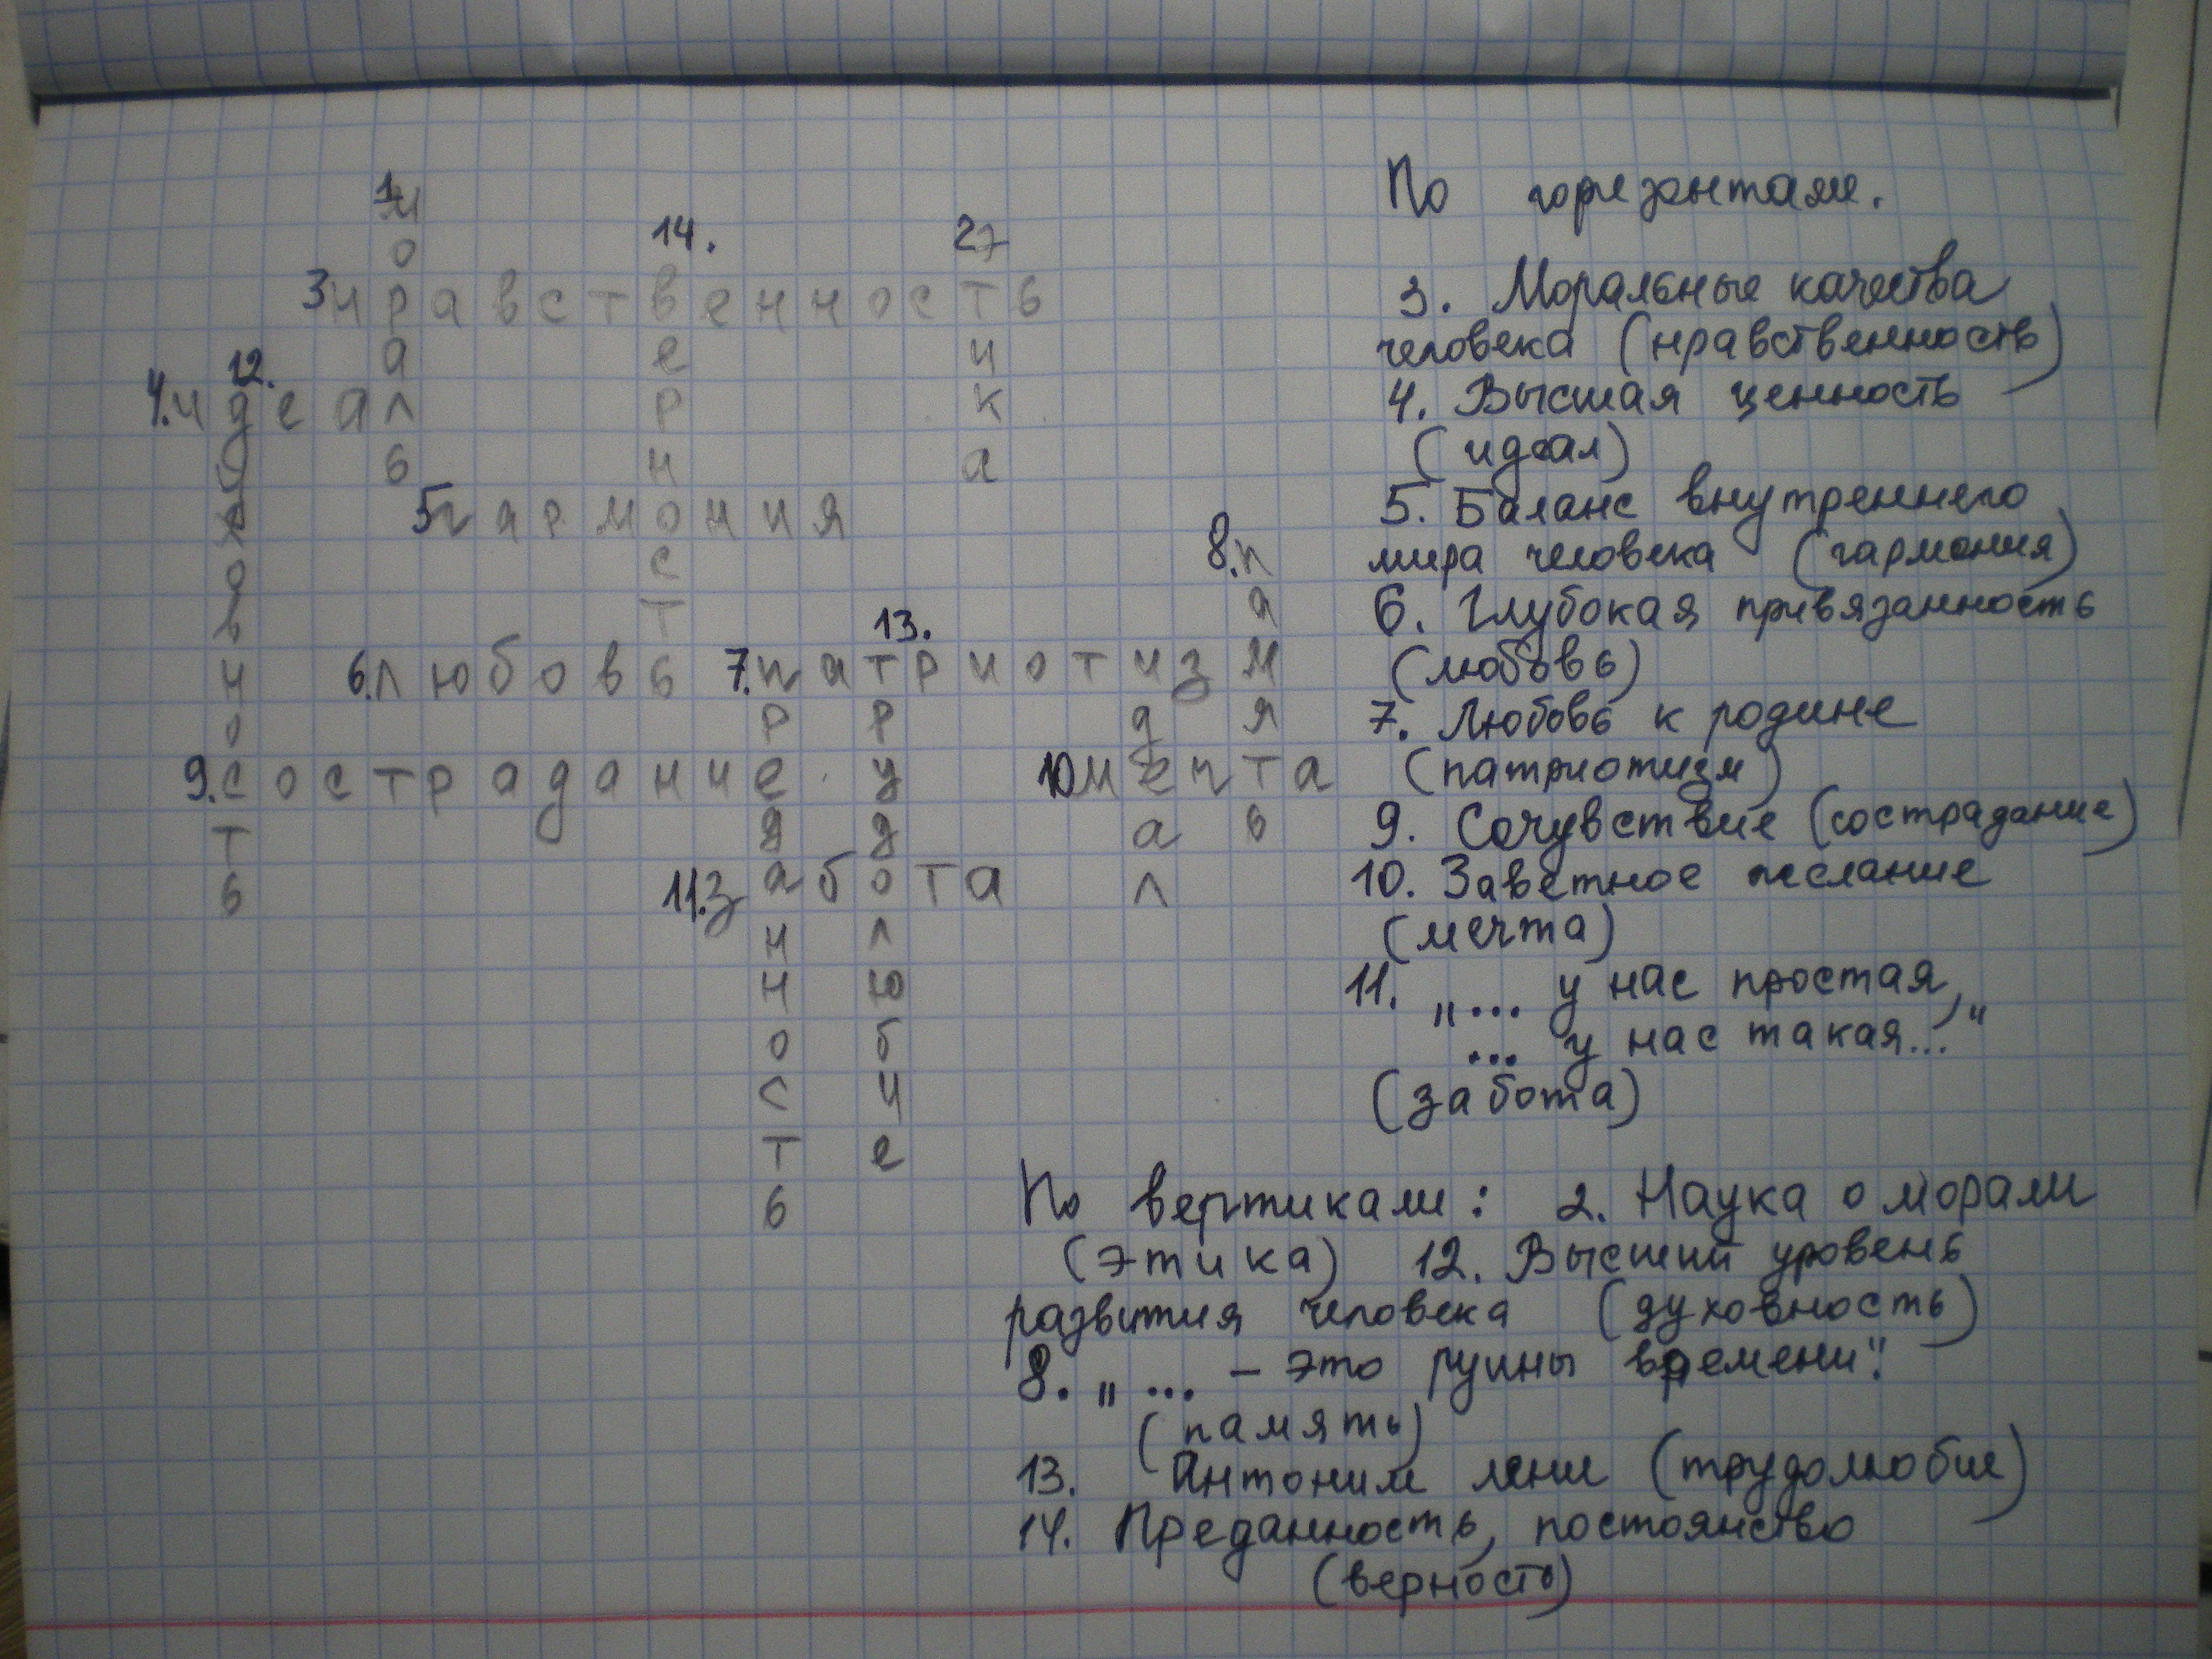 1м
о
14.
2э
3нравственность
а е и
12.
4.идеал р к
у ь н а
х 5гармония
о с 8.п
в т 13. а
н 6.любовь 7.патриотизм
о р р д я
9.сострадание у 10мечта
т д д а ь
ь 11.забота л
н л
н ю
о б
с и
т е
ь
По горизонтали.
3. Моральные качества
человека (нравственность)
4. Высшая ценность
(идеал)
5. Баланс внутреннего
мира человека (гармония)
6. Глубокая привязанность
(любовь)
7. Любовь к родине
(патриотизм)
9. Сочувствие (сострадание)
10. Заветное желание
(мечта)
11. „... у нас простая,
... у нас такая...“
(забота)
По вертикали: 2. Наука о морали
(этика) 12. Высший уровень
развития человека (духовность)
8. „... – это руины времени“.
(память)
13. Антоним лени (трудолюбие)
14. Преданность, постоянство
(верность)